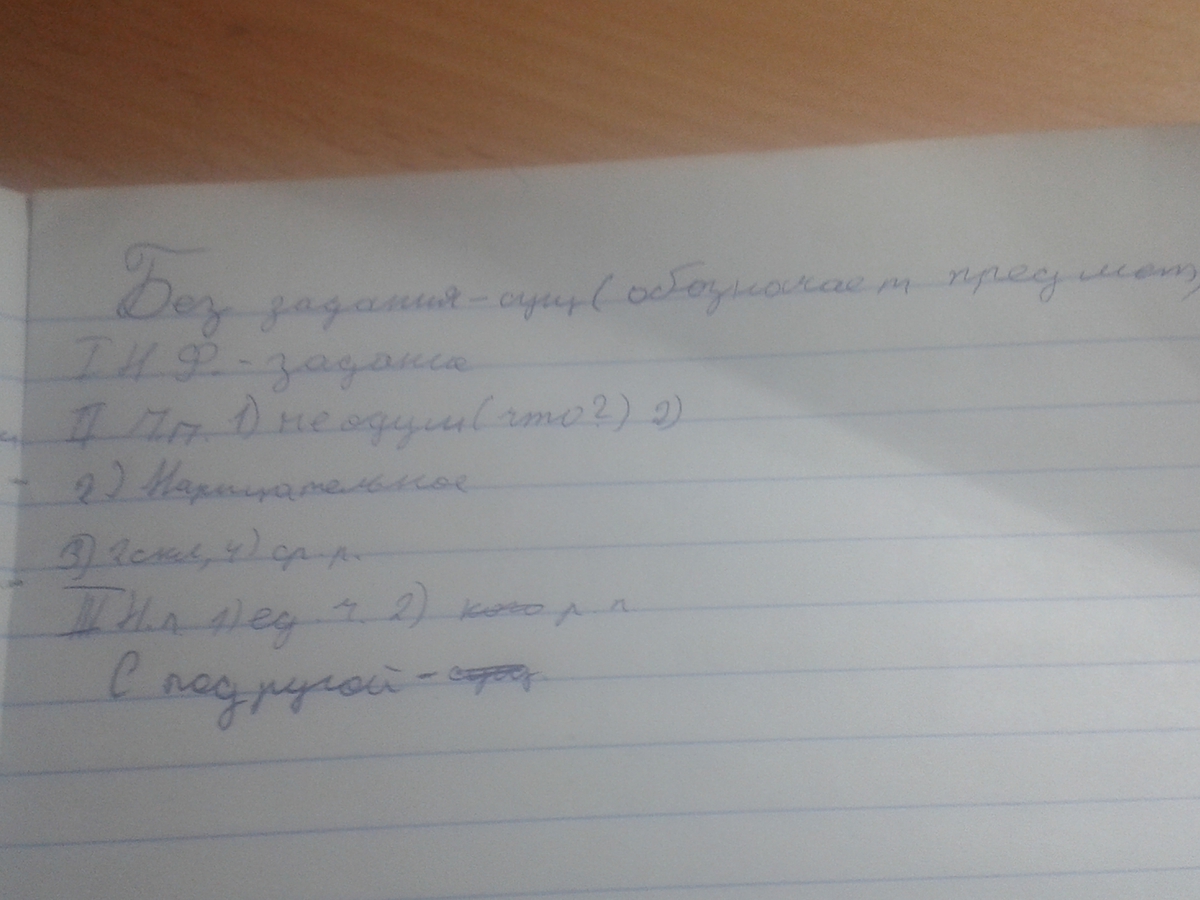 Без задания - сущ (обозначает предмет)
I Н.Ф. - задание
II П.п. 1) неодуш (что?) 2)
2) Нарицательное
3) 2 скл, 4) ср. р.
III Н.п 1) ед. ч. 2) р. п
С подругой -